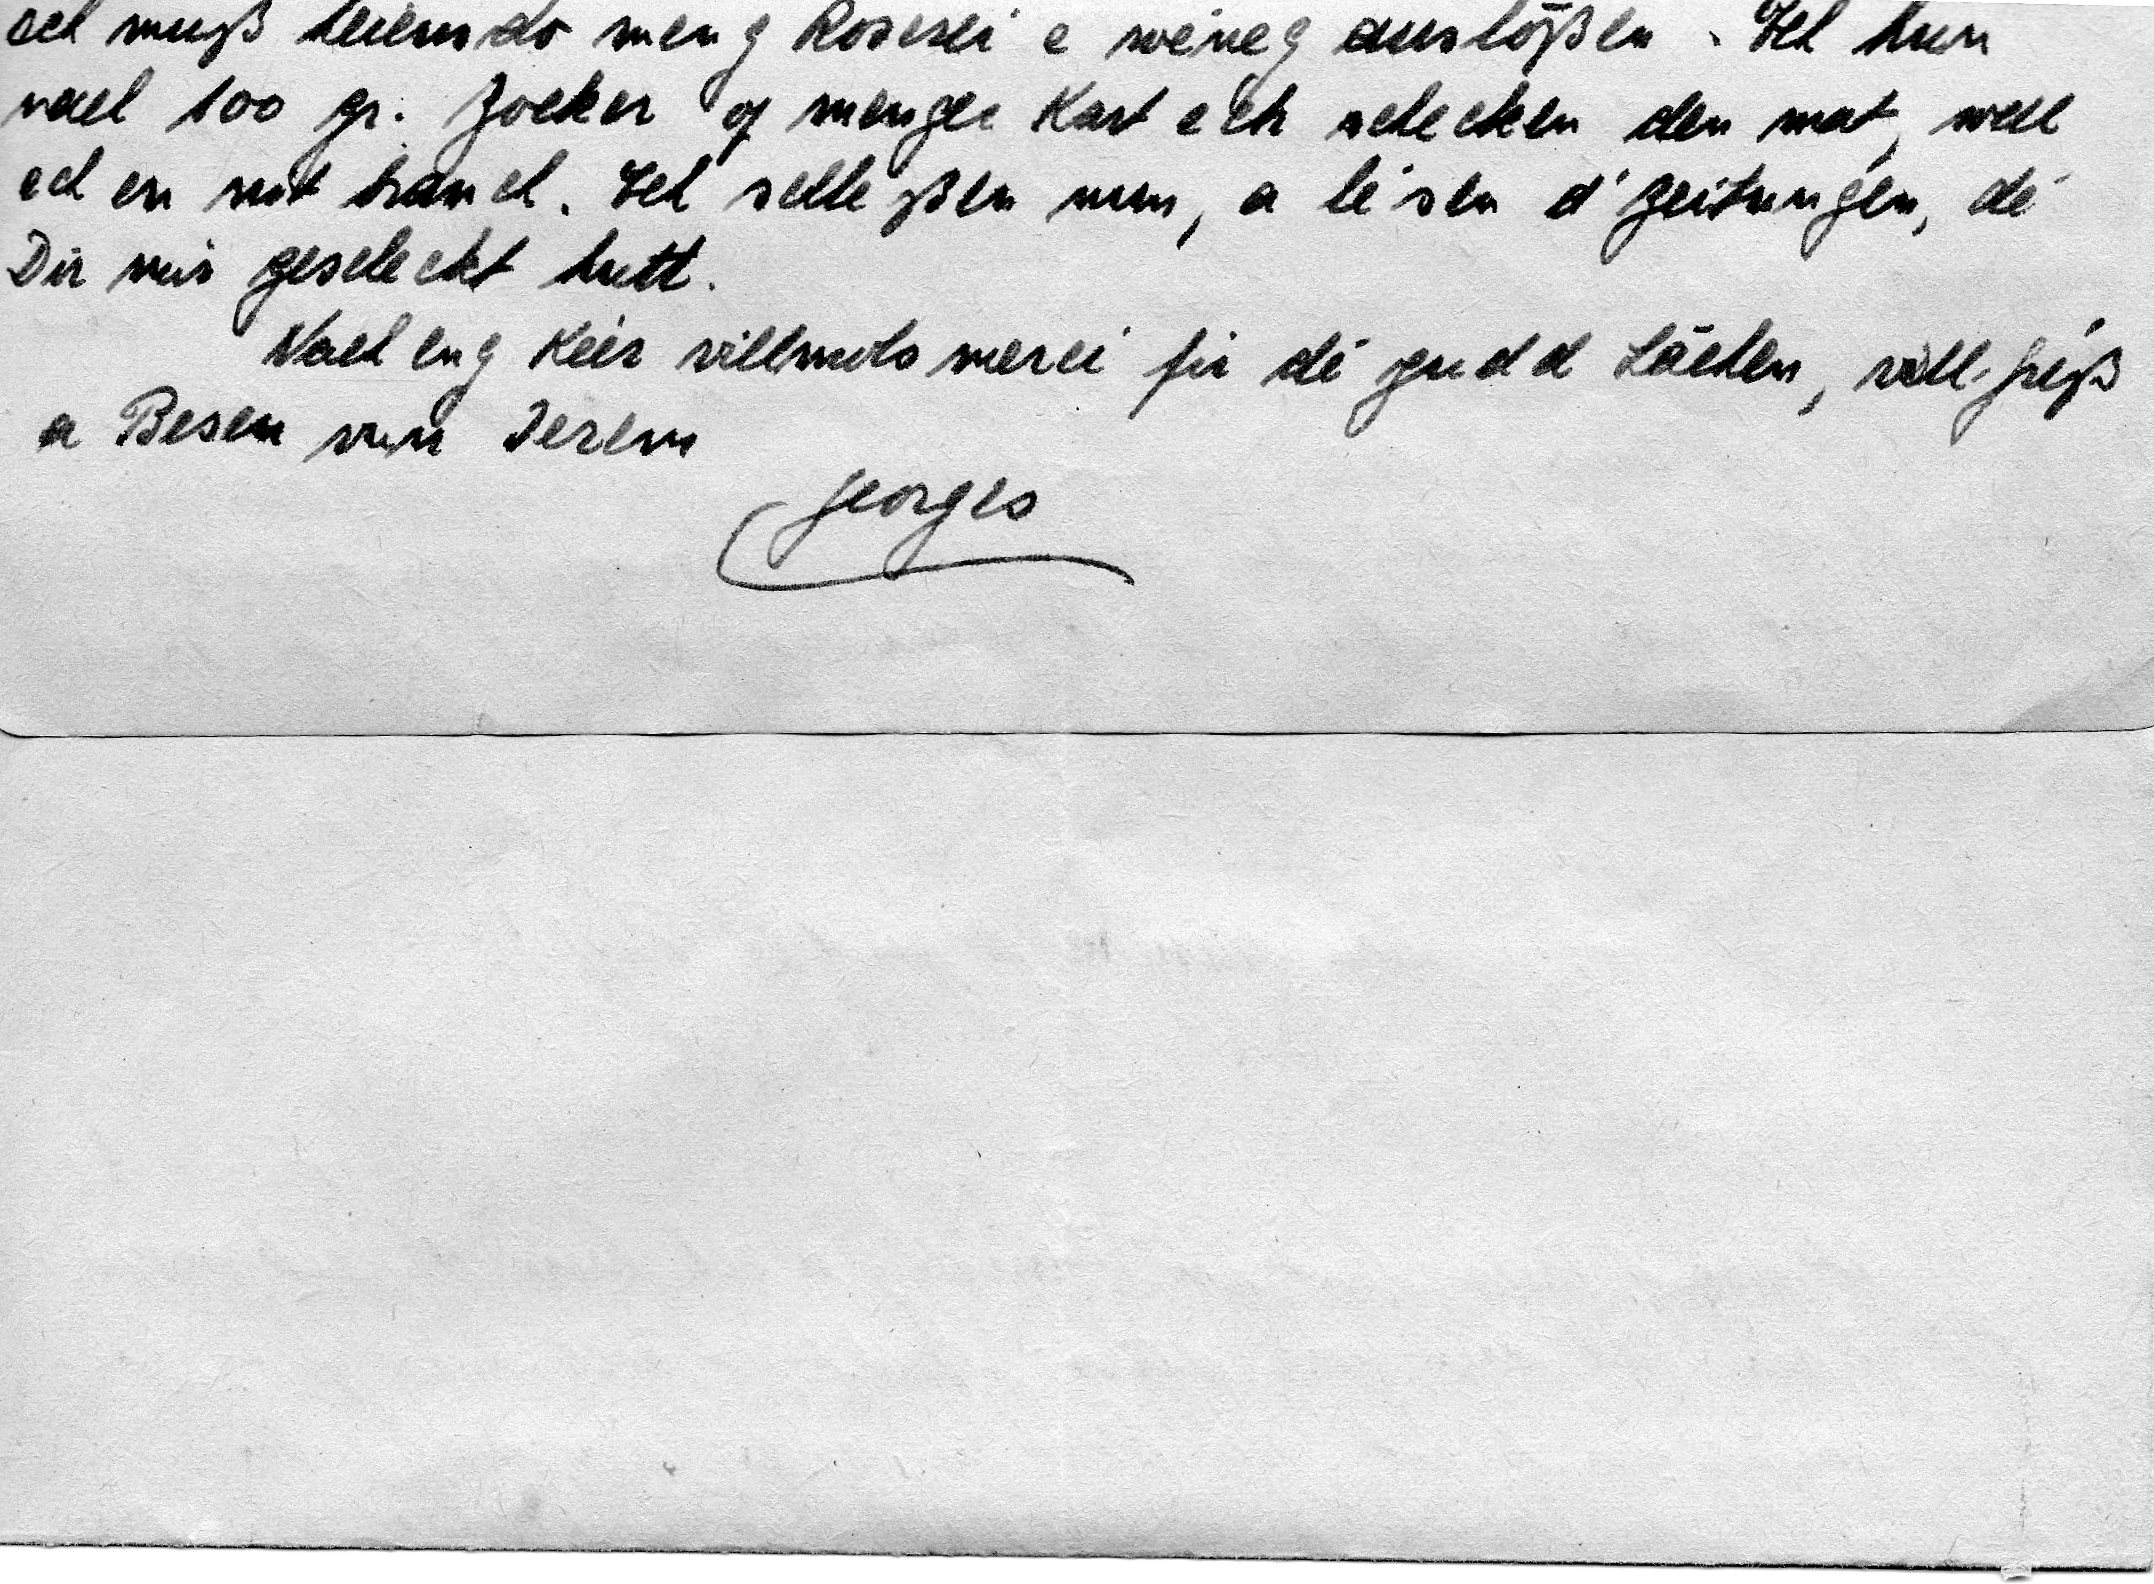 ech muß heiemdo meng Roserei e wéineg auslößen. Ech hun
nach 100 gr. Zocker op menger Kart ech schecken den mat, well
ech en net brauch. Ech schléßen nun, a lésen d'Zeitungen, dé
Dir mir gescheckt hutt.
Nach eng Kéier villmols merci fir dé gudd Sächen, vill Gréß
a Besen vun Jerem
Georges